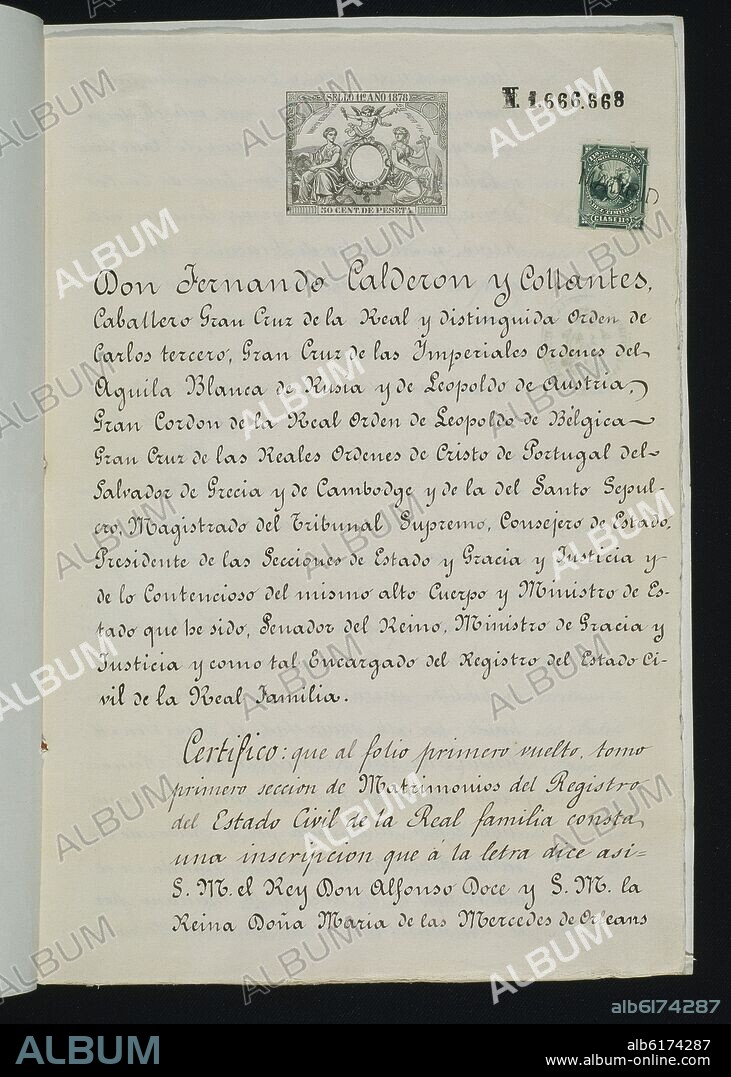 SELLO 11º AÑO 1878
N. 1.666.668
50 CENT. DE PESETA
CLASE 11ª
Don Fernando Calderon y Collantes,
Caballero Gran Cruz de la Real y distinguida Orden de
Carlos tercero, Gran Cruz de las Imperiales Ordenes del
Aguila Blanca de Rusia y de Leopoldo de Austria,
Gran Cordon de la Real Orden de Leopoldo de Bélgica
Gran Cruz de las Reales Ordenes de Cristo de Portugal del
Salvador de Grecia y de Cambodge y de la del Santo Sepul-
cro, Magistrado del Tribunal Supremo, Consejero de Estado,
Presidente de las Secciones de Estado y Gracia y Justicia y
de lo Contencioso del mismo alto Cuerpo y Ministro de Es-
tado que he sido, Senador del Reino, Ministro de Gracia y
Justicia y como tal Encargado del Registro del Estado Ci-
vil de la Real Familia.
Certifico: que al folio primero vuelto, tomo
primero seccion de Matrimonios del Registro
del Estado Civil de la Real familia consta
una inscripcion que á la letra dice asi=
S. M. el Rey Don Alfonso Doce y S. M. la
Reina Doña Maria de las Mercedes de Orleans
alb6174287
ALBUM
alb6174287
www.album-online.com